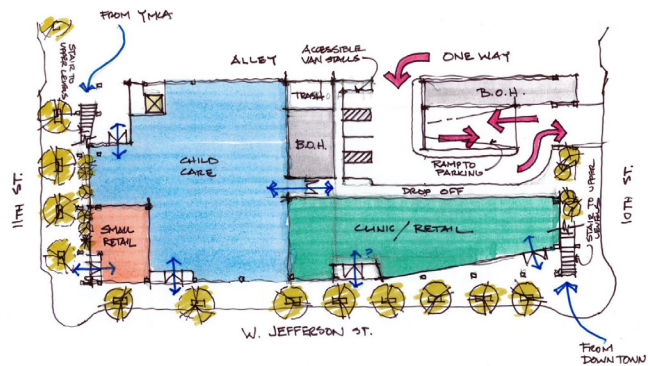 FROM YMCA
STAIR TO
UPPER LEVELS
ALLEY
ACCESSIBLE
VAN STALLS
ONE WAY
TRASH
B.O.H.
B.O.H.
CHILD
CARE
RAMP TO
PARKING
DROP OFF
11TH ST.
SMALL
RETAIL
CLINIC/RETAIL
?
STAIR TO
UPPER
LEVELS
10TH ST.
W. JEFFERSON ST.
FROM
DOWNTOWN